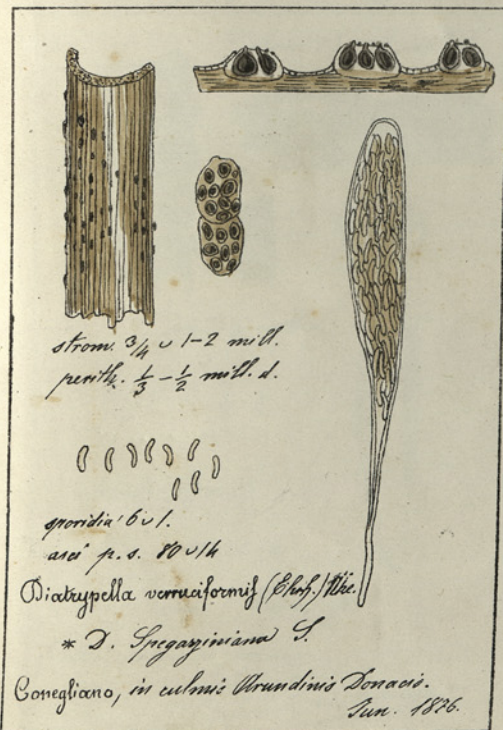 strom. 3/4 ∪ 1-2 mill.
perith. 1/3 - 1/2 mill. d.
sporidia 6 ∪ 1.
asci p. s. 80 ∪ 14
Diatrypella verruciformis (Ehrh.) Nke.
* D. Spegazziniana S.
Conegliano, in culmis Arundinis Donacis.
Jun. 1876.